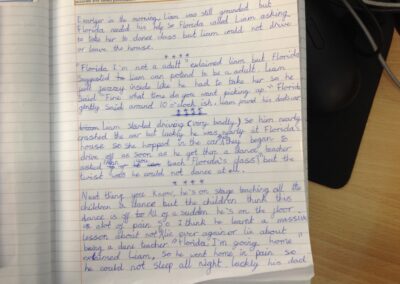 in the morning. Liam was still grounded but
Florida needed his help so Florida called Liam asking
to take her to dance class but Liam would not drive
or leave the house.
* * * *
"Florida I'm not a adult" exclaimed Liam but Florida
suggested to Liam can pretend to be a adult Liam
will inside like he had to take her so he
said Fine what time do you want picking up" Florida
gently said around 10 o'clock ish. Liam joined his
* * * *
Liam started driving (very badly) so him nearly
crashed the car but luckily he was nearly at Florida's
house so she hopped in the car they began to
drive off as soon as he got their a dance teacher
asked you teach Florida's class" but the
twist was he could not dance at all.
* * * *
Next thing you know, he's on stage teaching all the
children a dance but the children think this
dance is off All of a sudden he's on the floor
a lot of pain So I think he learnt a massive
lesson about not lie ever again or lie about
being a dance teacher. "Florida I'm going home"
exclaimed Liam, So he went home in pain so
he could not sleep all night luckily his dad